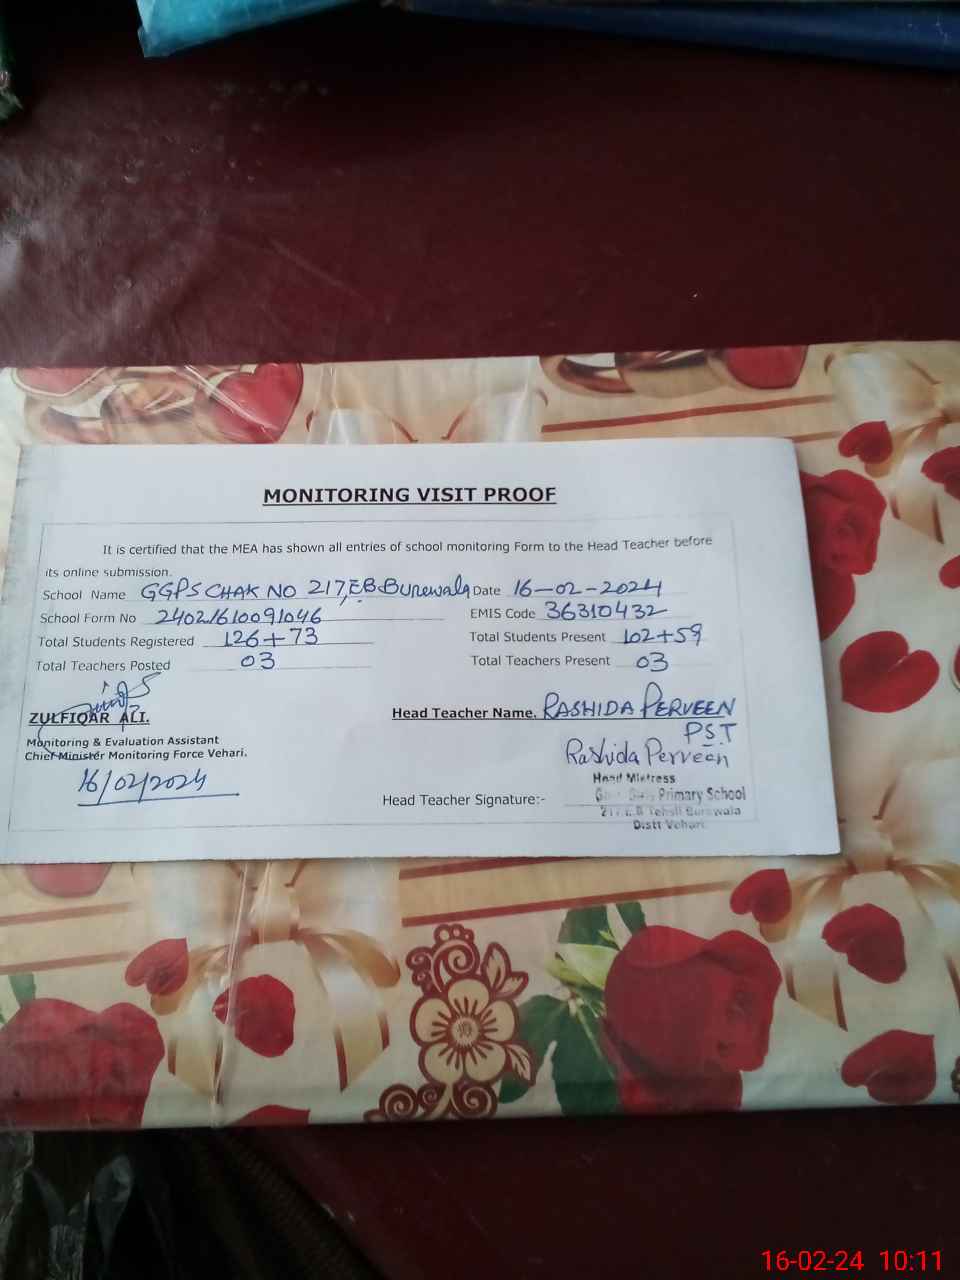 MONITORING VISIT PROOF
It is certified that the MEA has shown all entries of school monitoring Form to the Head Teacher before
its online submission.
School Name GGPS CHAK NO 217, EB Burewala Date 16-02-2024
School Form No 24021610091046 EMIS Code 36310432
Total Students Registered 126+73 Total Students Present 102+59
Total Teachers Posted 03 Total Teachers Present 03
ZULFIQAR ALI. Head Teacher Name. RASHIDA PERVEEN
PST
Monitoring & Evaluation Assistant
Chief Minister Monitoring Force Vehari.
Rashida Perveen
16/02/2024
Head Teacher Signature:-
Head Mistress
Primary School
217 E.B Tehsil Burewala
Distt Vehari.
16-02-24 10:11